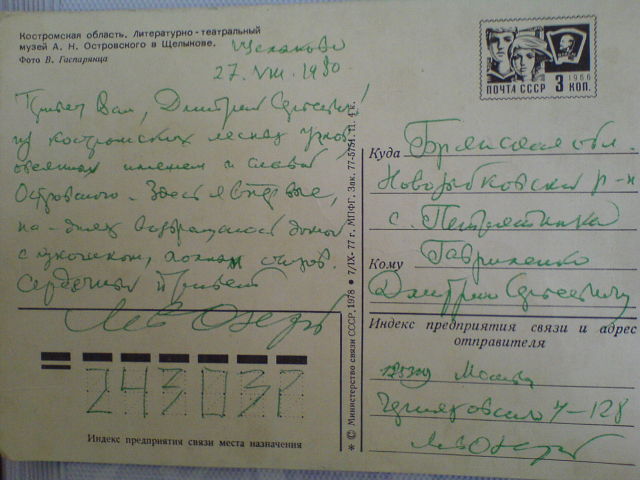 Костромская область. Литературно-театральный
музей А. Н. Островского в Щелыкове.
Фото В. Гаспарянца
Щелыково
27.VIII.1980
Привет Вам, Дмитрий Сергеевич!
из костромских лесных
овеянных именем и славой
Островского. Здесь я впервые,
на-днях возвращаюсь домой
с
Сердечный привет
Лев Озеров
ПОЧТА СССР 3 КОП.
1966
Куда Брянская обл.
Новозыбковский р-н
с.
Кому Гавриленко
Дмитрию Сергеевичу
Индекс предприятия связи и адрес
отправителя
Москва
Черняховского 4-128
Лев Озеров
243037
Индекс предприятия связи места назначения
* © Министерство связи СССР, 1978 ● 7/IX-77 г. МПФГ. Зак. 77-5751. П. 4 к.